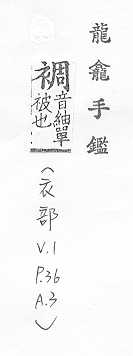 龍龕手鑑
裯音紬單
被也
（衣部 V.1 P.36 A.3）